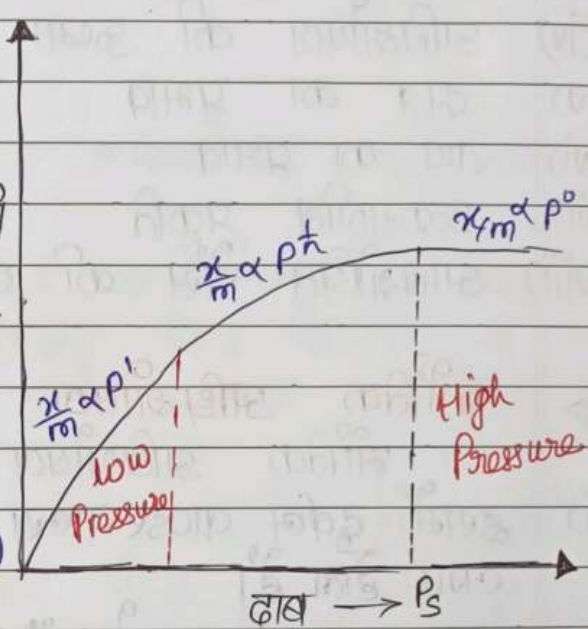 x/m ∝ P¹
x/m ∝ P^1/n
x/m ∝ P⁰
Low
Pressure
High
Pressure
दाब → Ps